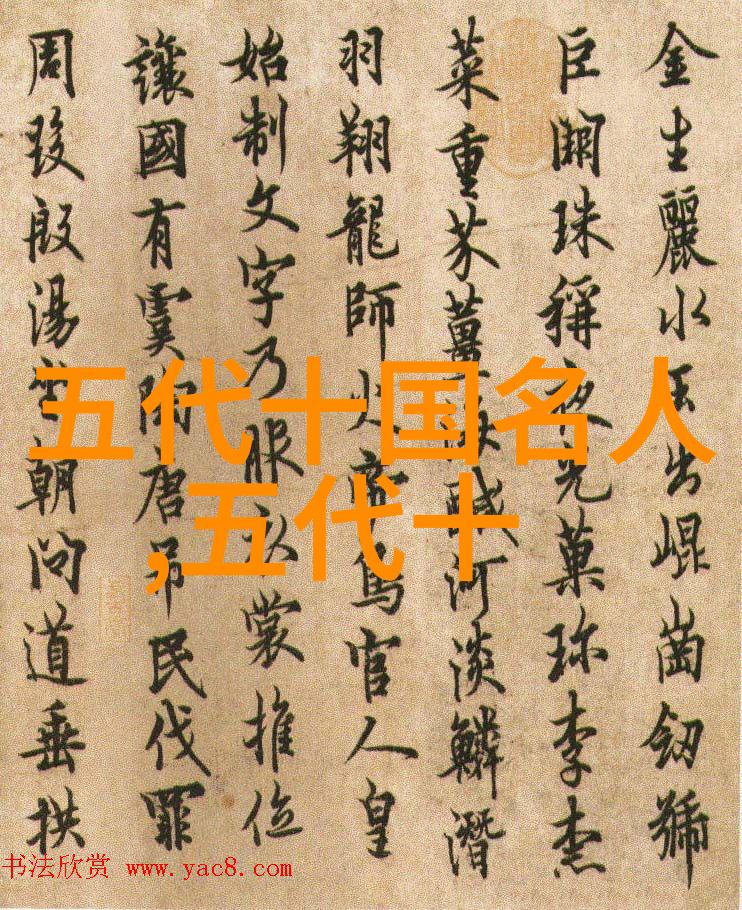 金生麗水玉出崐崗劒號
巨闕珠稱夜光菓珎李柰
菜重芥薑海醎河淡鱗潛
羽翔龍師火帝鳥官人皇
始制文字乃服衣裳推位
讓國有虞陶唐吊民伐罪
周發殷湯坐朝問道垂拱
五代十国名人
,五代十
书法欣赏 www.yac8.com